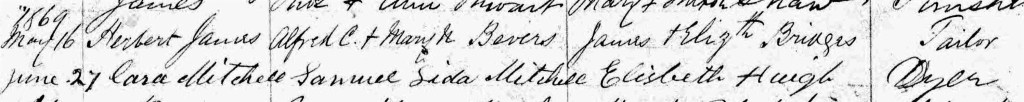 1869
May 16 Herbert James Alfred C. + Mary N Bevers James + Elizth Bridges Tailor
June 27 Cara Mitchell Samuel Lida Mitchell Elisbeth Haigh Dyer